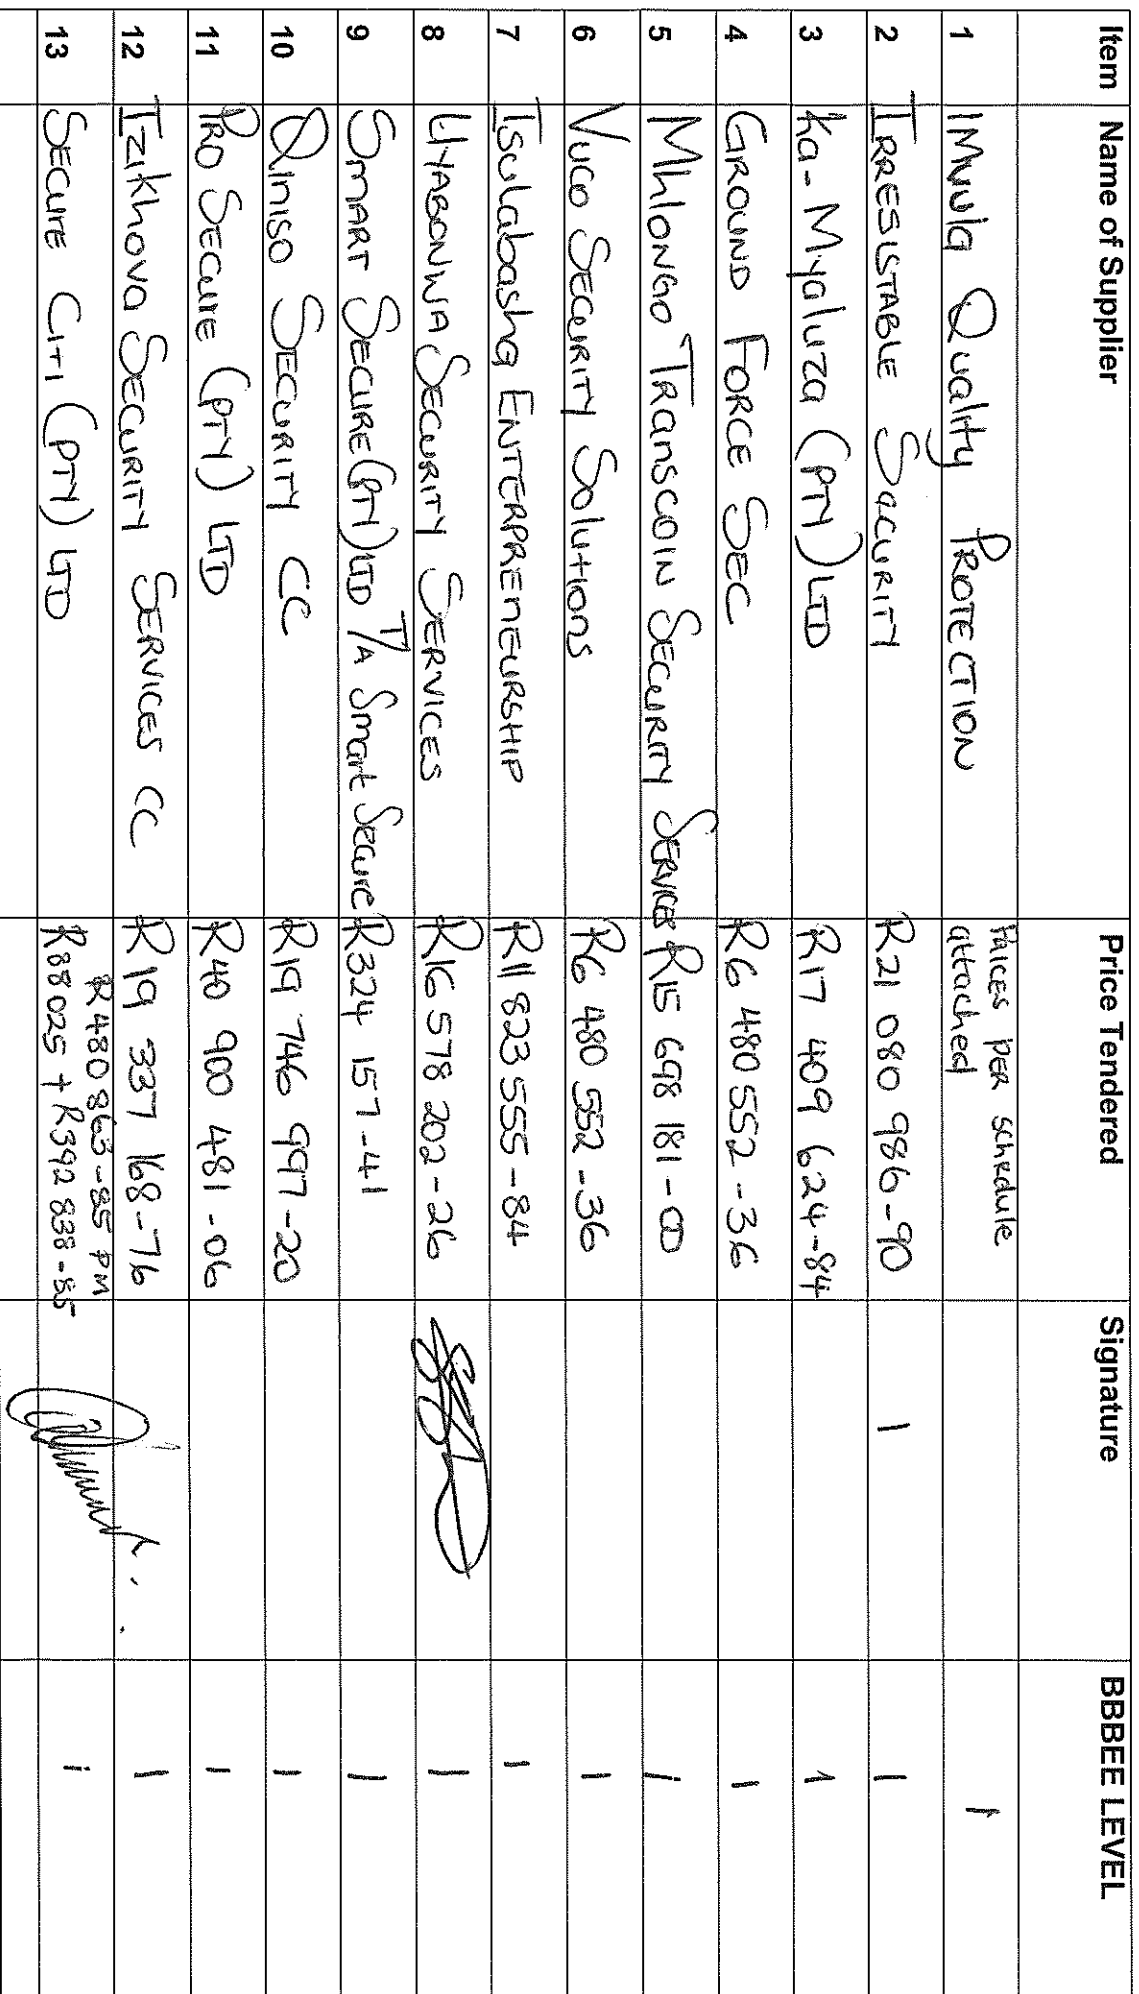 Item Name of Supplier Price Tendered Signature BBBEE LEVEL
1 IMvula Quality Protection Prices per schedule attached 1
2 Irresistable Security R21 080 986-90 1 1
3 Ka-Myaluza (PTY) LTD R17 409 624-84 1
4 Ground Force Sec R6 480 552-36 1
5 Mhlongo Transcoin Security Services R15 698 181-00 1
6 Vuco Security Solutions R6 480 552-36 1
7 Isulabasha Enterpreneurship R11 823 555-84 1
8 Uyabonwa Security Services R16 578 202-26 1
9 Smart Secure (PTY) LTD T/A Smart Secure R324 157-41 1
10 Qiniso Security CC R19 746 997-20 1
11 Pro Secure (PTY) LTD R40 900 481-06 1
12 Izikhova Security Services CC R19 337 168-76 1
13 Secure Citi (PTY) LTD R480 863-85 PM R88025 + R392 838-85 1